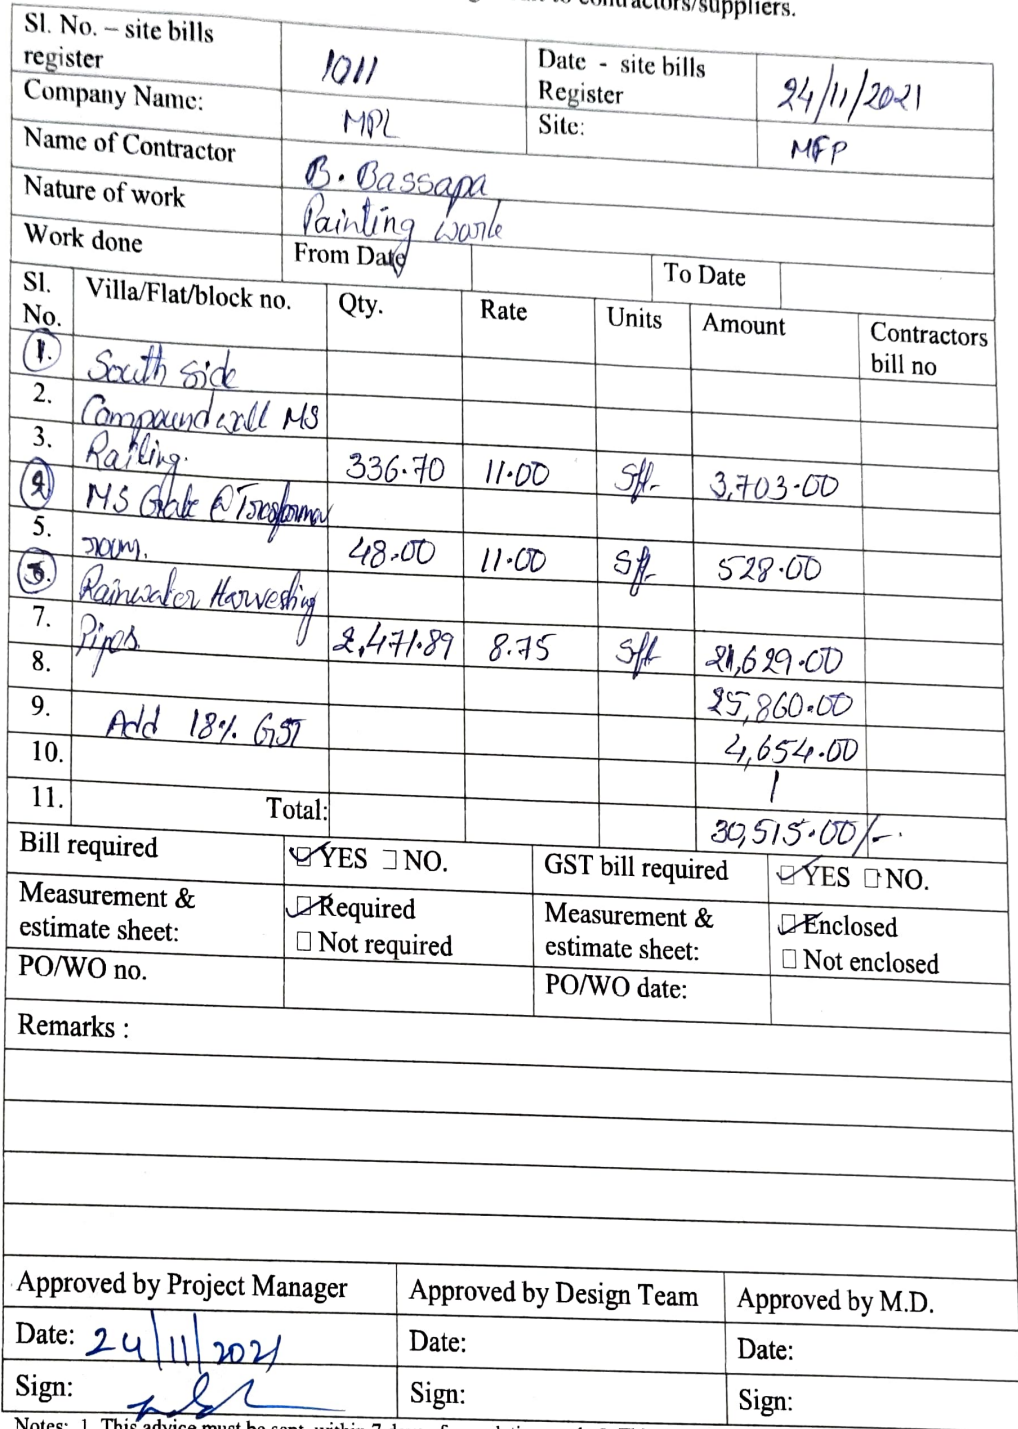 contractors/suppliers.
Sl. No. – site bills register 1011 Date - site bills Register 24/11/2021
Company Name: MPL Site: MFP
Name of Contractor B. Bassapa
Nature of work Painting work
Work done From Date To Date
Sl. No. Villa/Flat/block no. Qty. Rate Units Amount Contractors bill no
1. South side
2. Compound wall MS
3. Railing. 336.70 11.00 Sft. 3,703.00
MS Grate @ Transformer
5. room. 48.00 11.00 Sft. 528.00
Rainwater Harvesting
7. Pipes. 2,471.89 8.75 Sft 21,629.00
8. 25,860.00
9. Add 18% GST 4,654.00
10. 1
11. Total: 30,515.00/-.
Bill required YES NO. GST bill required YES NO.
Measurement & estimate sheet: Required Measurement & estimate sheet: Enclosed
Not required Not enclosed
PO/WO no. PO/WO date:
Remarks :
Approved by Project Manager Approved by Design Team Approved by M.D.
Date: 24/11/2021 Date: Date:
Sign: Sign: Sign:
Notes: 1. This advice must be sent within 7 days